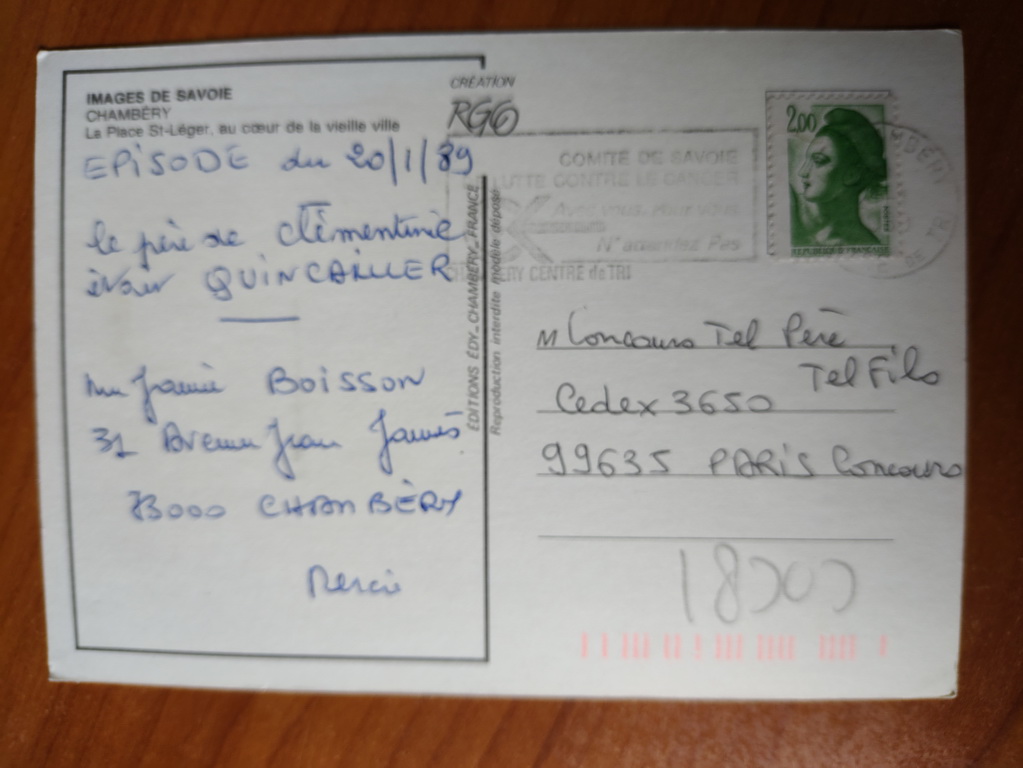 IMAGES DE SAVOIE
CHAMBÉRY
La Place St-Léger, au cœur de la vieille ville
EPISODE du 20/1/89
le père de Clémentine
QUINCAILLER
BOISSON
31 Avenue Jean Jaurès
73000 CHAMBÉRY
Merci
CRÉATION
RGG
ÉDITIONS ÉDY_CHAMBÉRY_FRANCE
Reproduction interdite modèle déposé
COMITÉ DE SAVOIE
LUTTE CONTRE LE CANCER
Avec vous, Pour vous
N'attendez Pas
CHAMBERY CENTRE de TRI
2,00
REPUBLIQUE FRANÇAISE
M Concours Tel Père
Tel Fils
Cedex 3650
99635 PARIS Concours